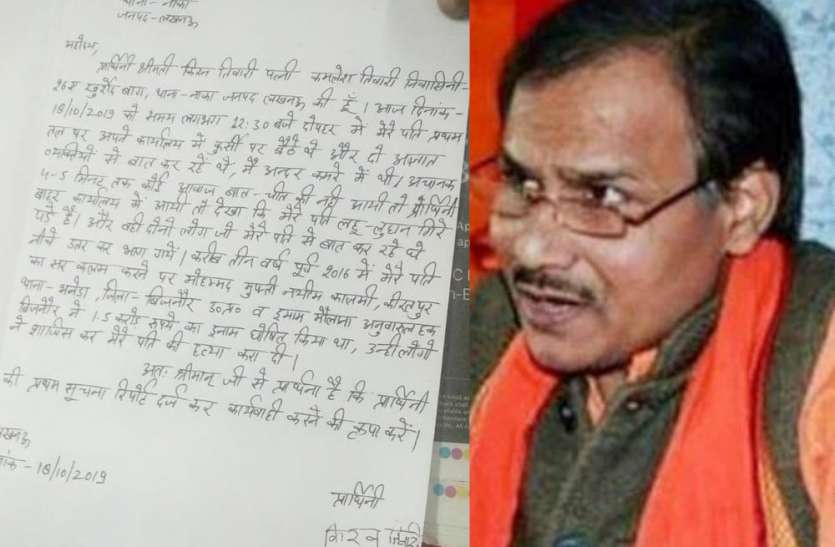 थाना - नाका
जनपद - लखनऊ
महोदय,
प्रार्थिनी श्रीमती किरन तिवारी पत्नी कमलेश तिवारी निवासिनी-
खुर्शेद बाग, थाना-नाका जनपद लखनऊ की हूँ। आज दिनांक-
18/10/2019 को समय लगभग 12:30 बजे दोपहर में मेरे पति प्रथम
तल पर अपने कार्यालय में कुर्सी पर बैठे थे और दो अज्ञात
व्यक्तियों से बात कर रहे थे, मैं अन्दर कमरे में थी। अचानक
4-5 मिनट तक कोई आवाज बात-चीत की नहीं आयी तो प्रार्थिनी
बाहर कार्यालय में आयी तो देखा कि मेरे पति लहू-लुहान गिरे
पड़े हैं। और वही दोनों लोग जो मेरे पति से बात कर रहे थे
नीचे उतर कर भाग गये। करीब तीन वर्ष पूर्व 2016 में मेरे पति
का सर कलम करने पर मोहम्मद मुफ्ती नईम काजमी, कीरतपुर
थाना-भनेडा, जिला-बिजनौर उ०प्र० व इमाम मौलाना अनुवारुल हक
बिजनौर ने 1.5 करोड़ रुपये का इनाम घोषित किया था, उन्हीं लोगों
ने साजिस कर मेरे पति की हत्या करा दी।
अतः श्रीमान् जी से प्रार्थना है कि प्रार्थिनी
की प्रथम सूचना रिपोर्ट दर्ज कर कार्यवाही करने की कृपा करें।
लखनऊ
-18/10/2019
प्रार्थिनी
किरन तिवारी